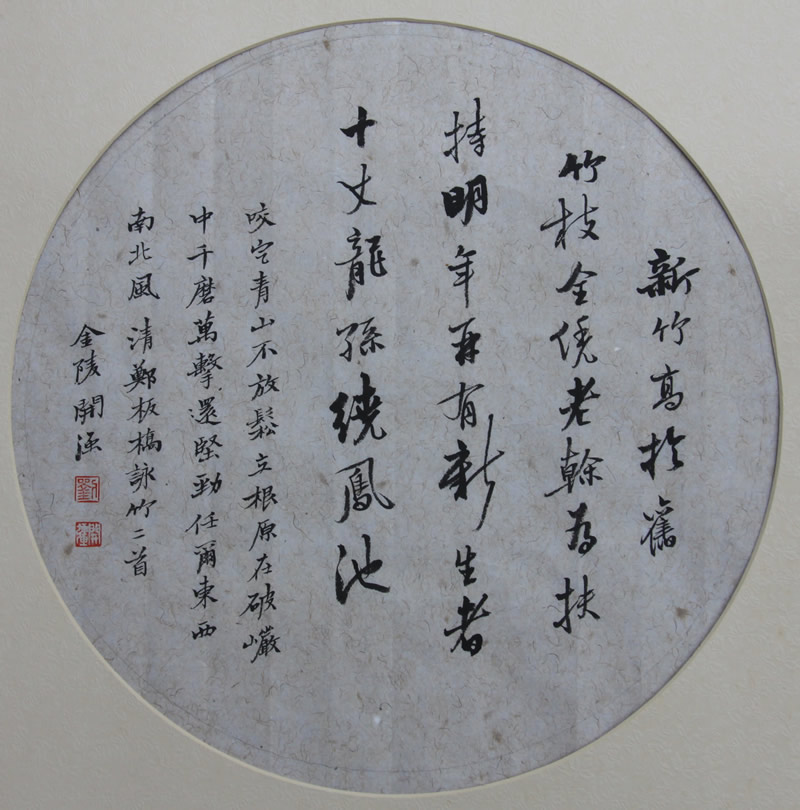 新竹高於舊
竹枝全凭老幹為扶
持明年再有新生者
十丈龍孫繞鳳池
咬定青山不放鬆立根原在破巖
中千磨萬擊還堅勁任爾東西
南北風 清鄭板橋詠竹二首
金陵開
劉